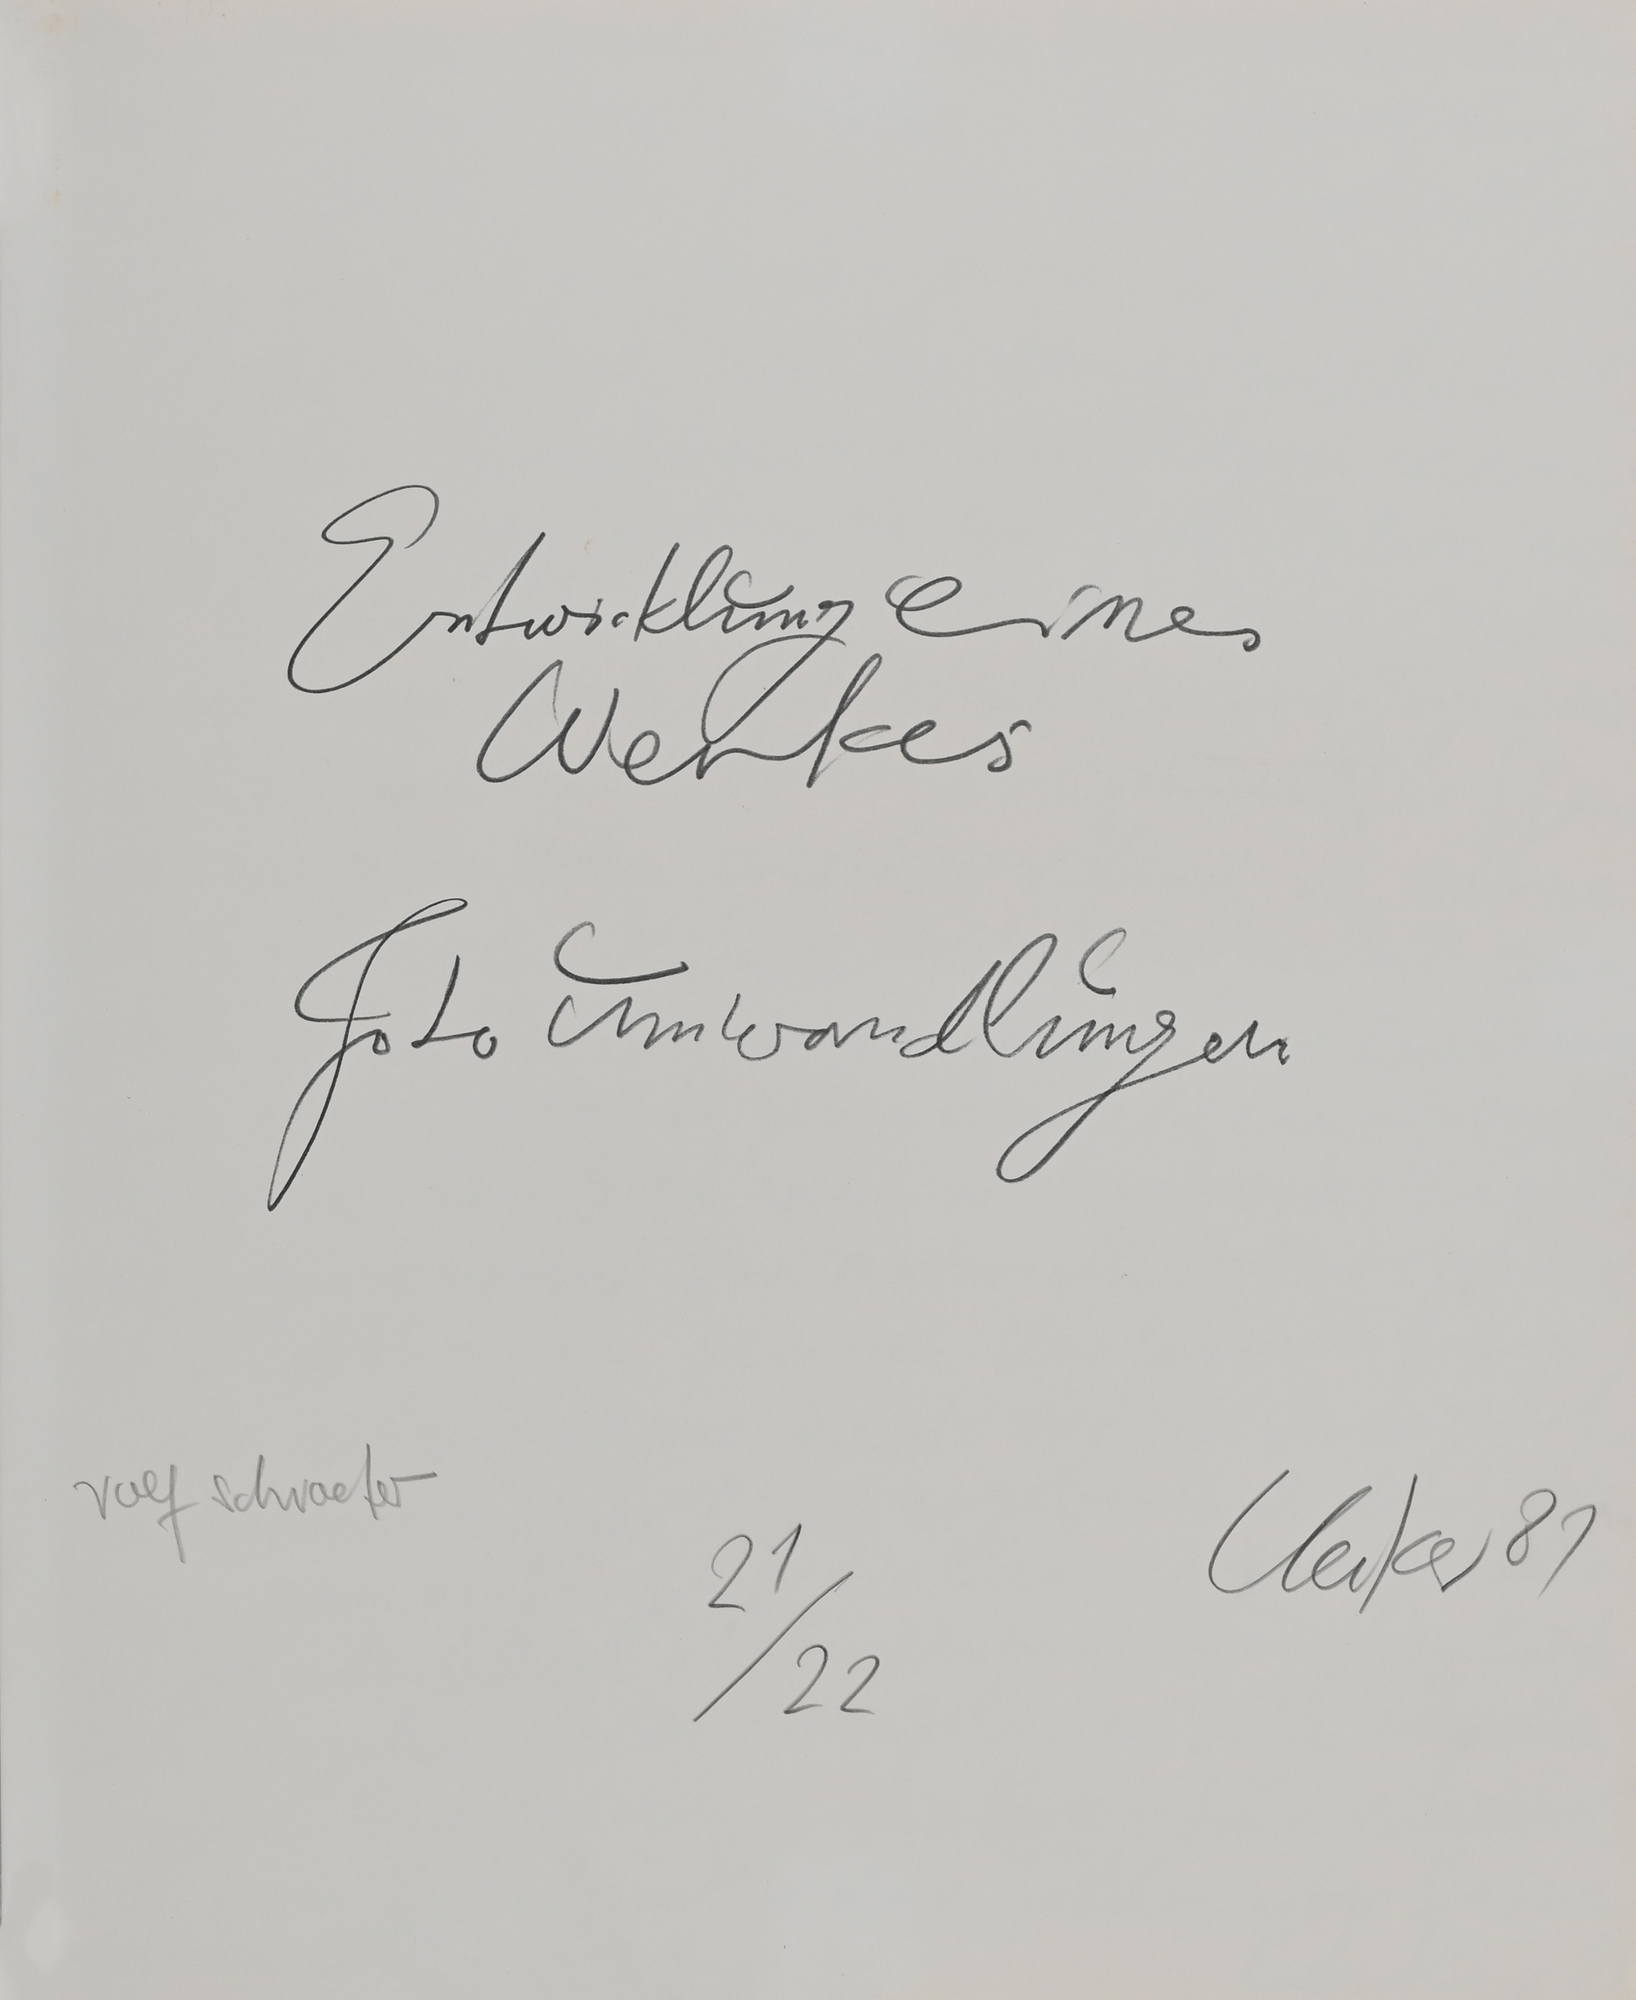 Entwicklung eines
Werkes
Foto Umwandlungen
rolf schroeter
Uecker 81
21/22